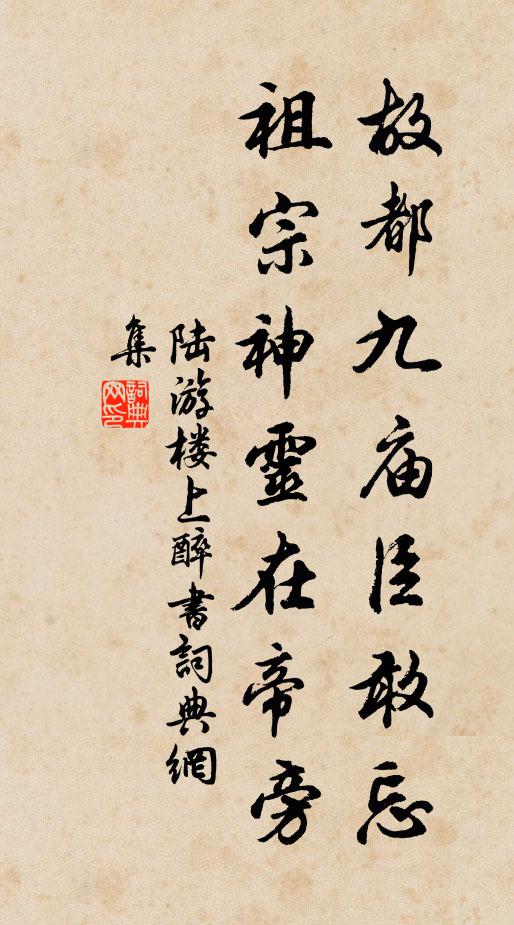 故都九庙臣敢忘
祖宗神靈在帝旁
陆游楼上醉書詞典網
集
詞典网印